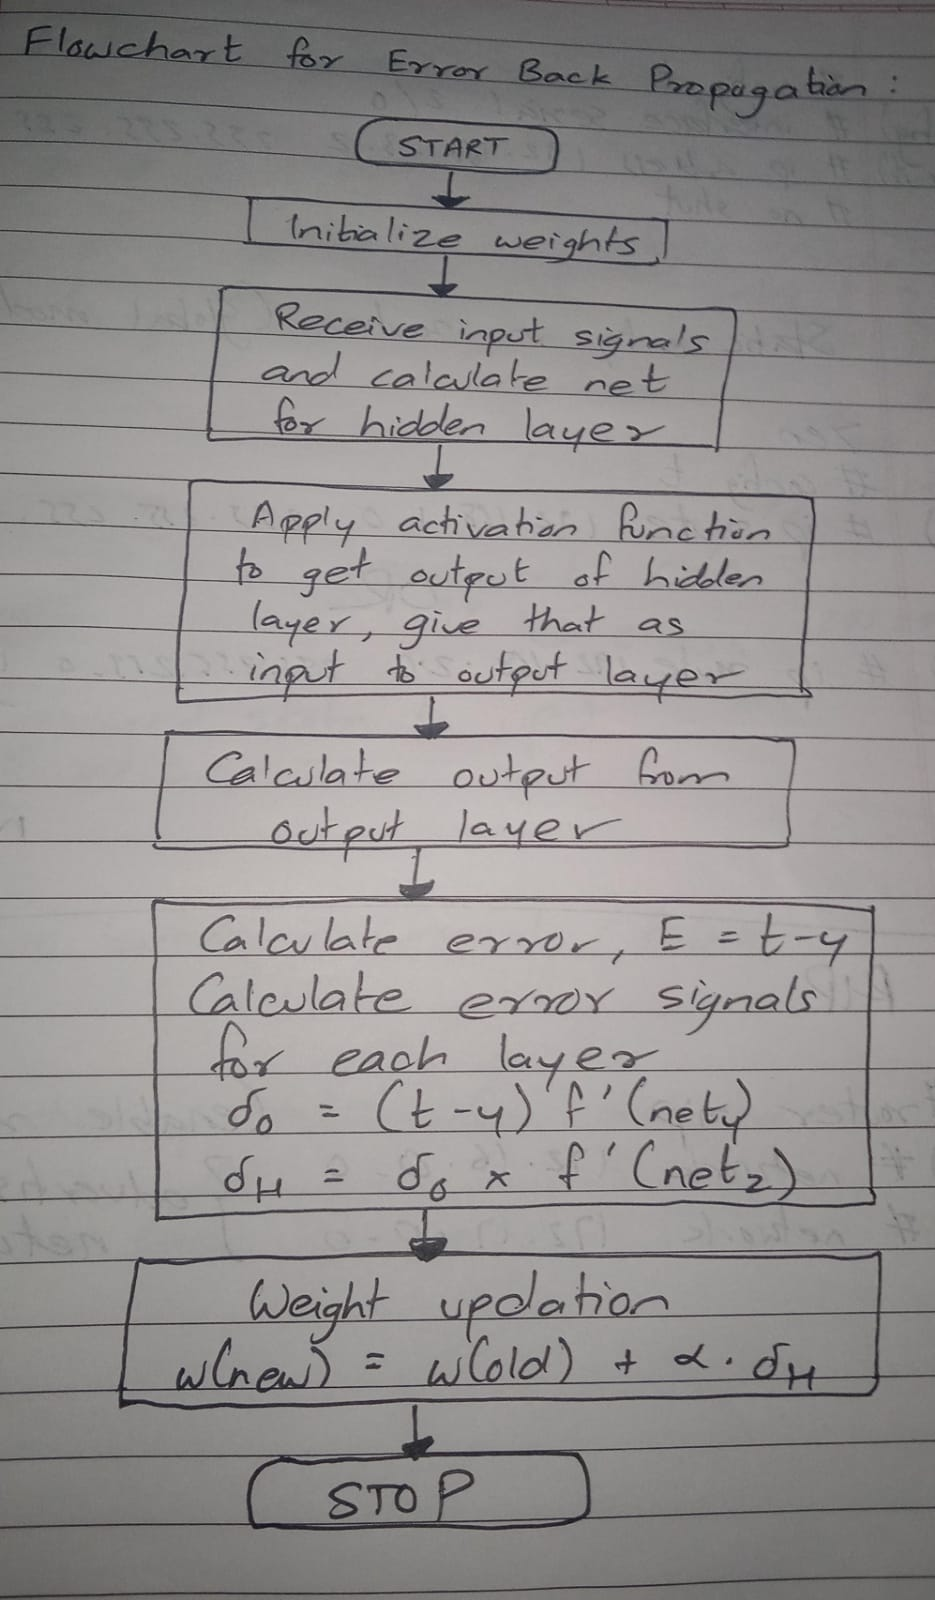 Flowchart for Error Back Propagation :
START
Initialize weights
Receive input signals
and calculate net
for hidden layer
Apply activation function
to get output of hidden
layer, give that as
input to output layer
Calculate output from
output layer
Calculate error, E = t-y
Calculate error signals
for each layer
δo = (t-y) f'(nety)
δH = δo x f'(netz)
Weight updation
w(new) = w(old) + α. δH
STOP